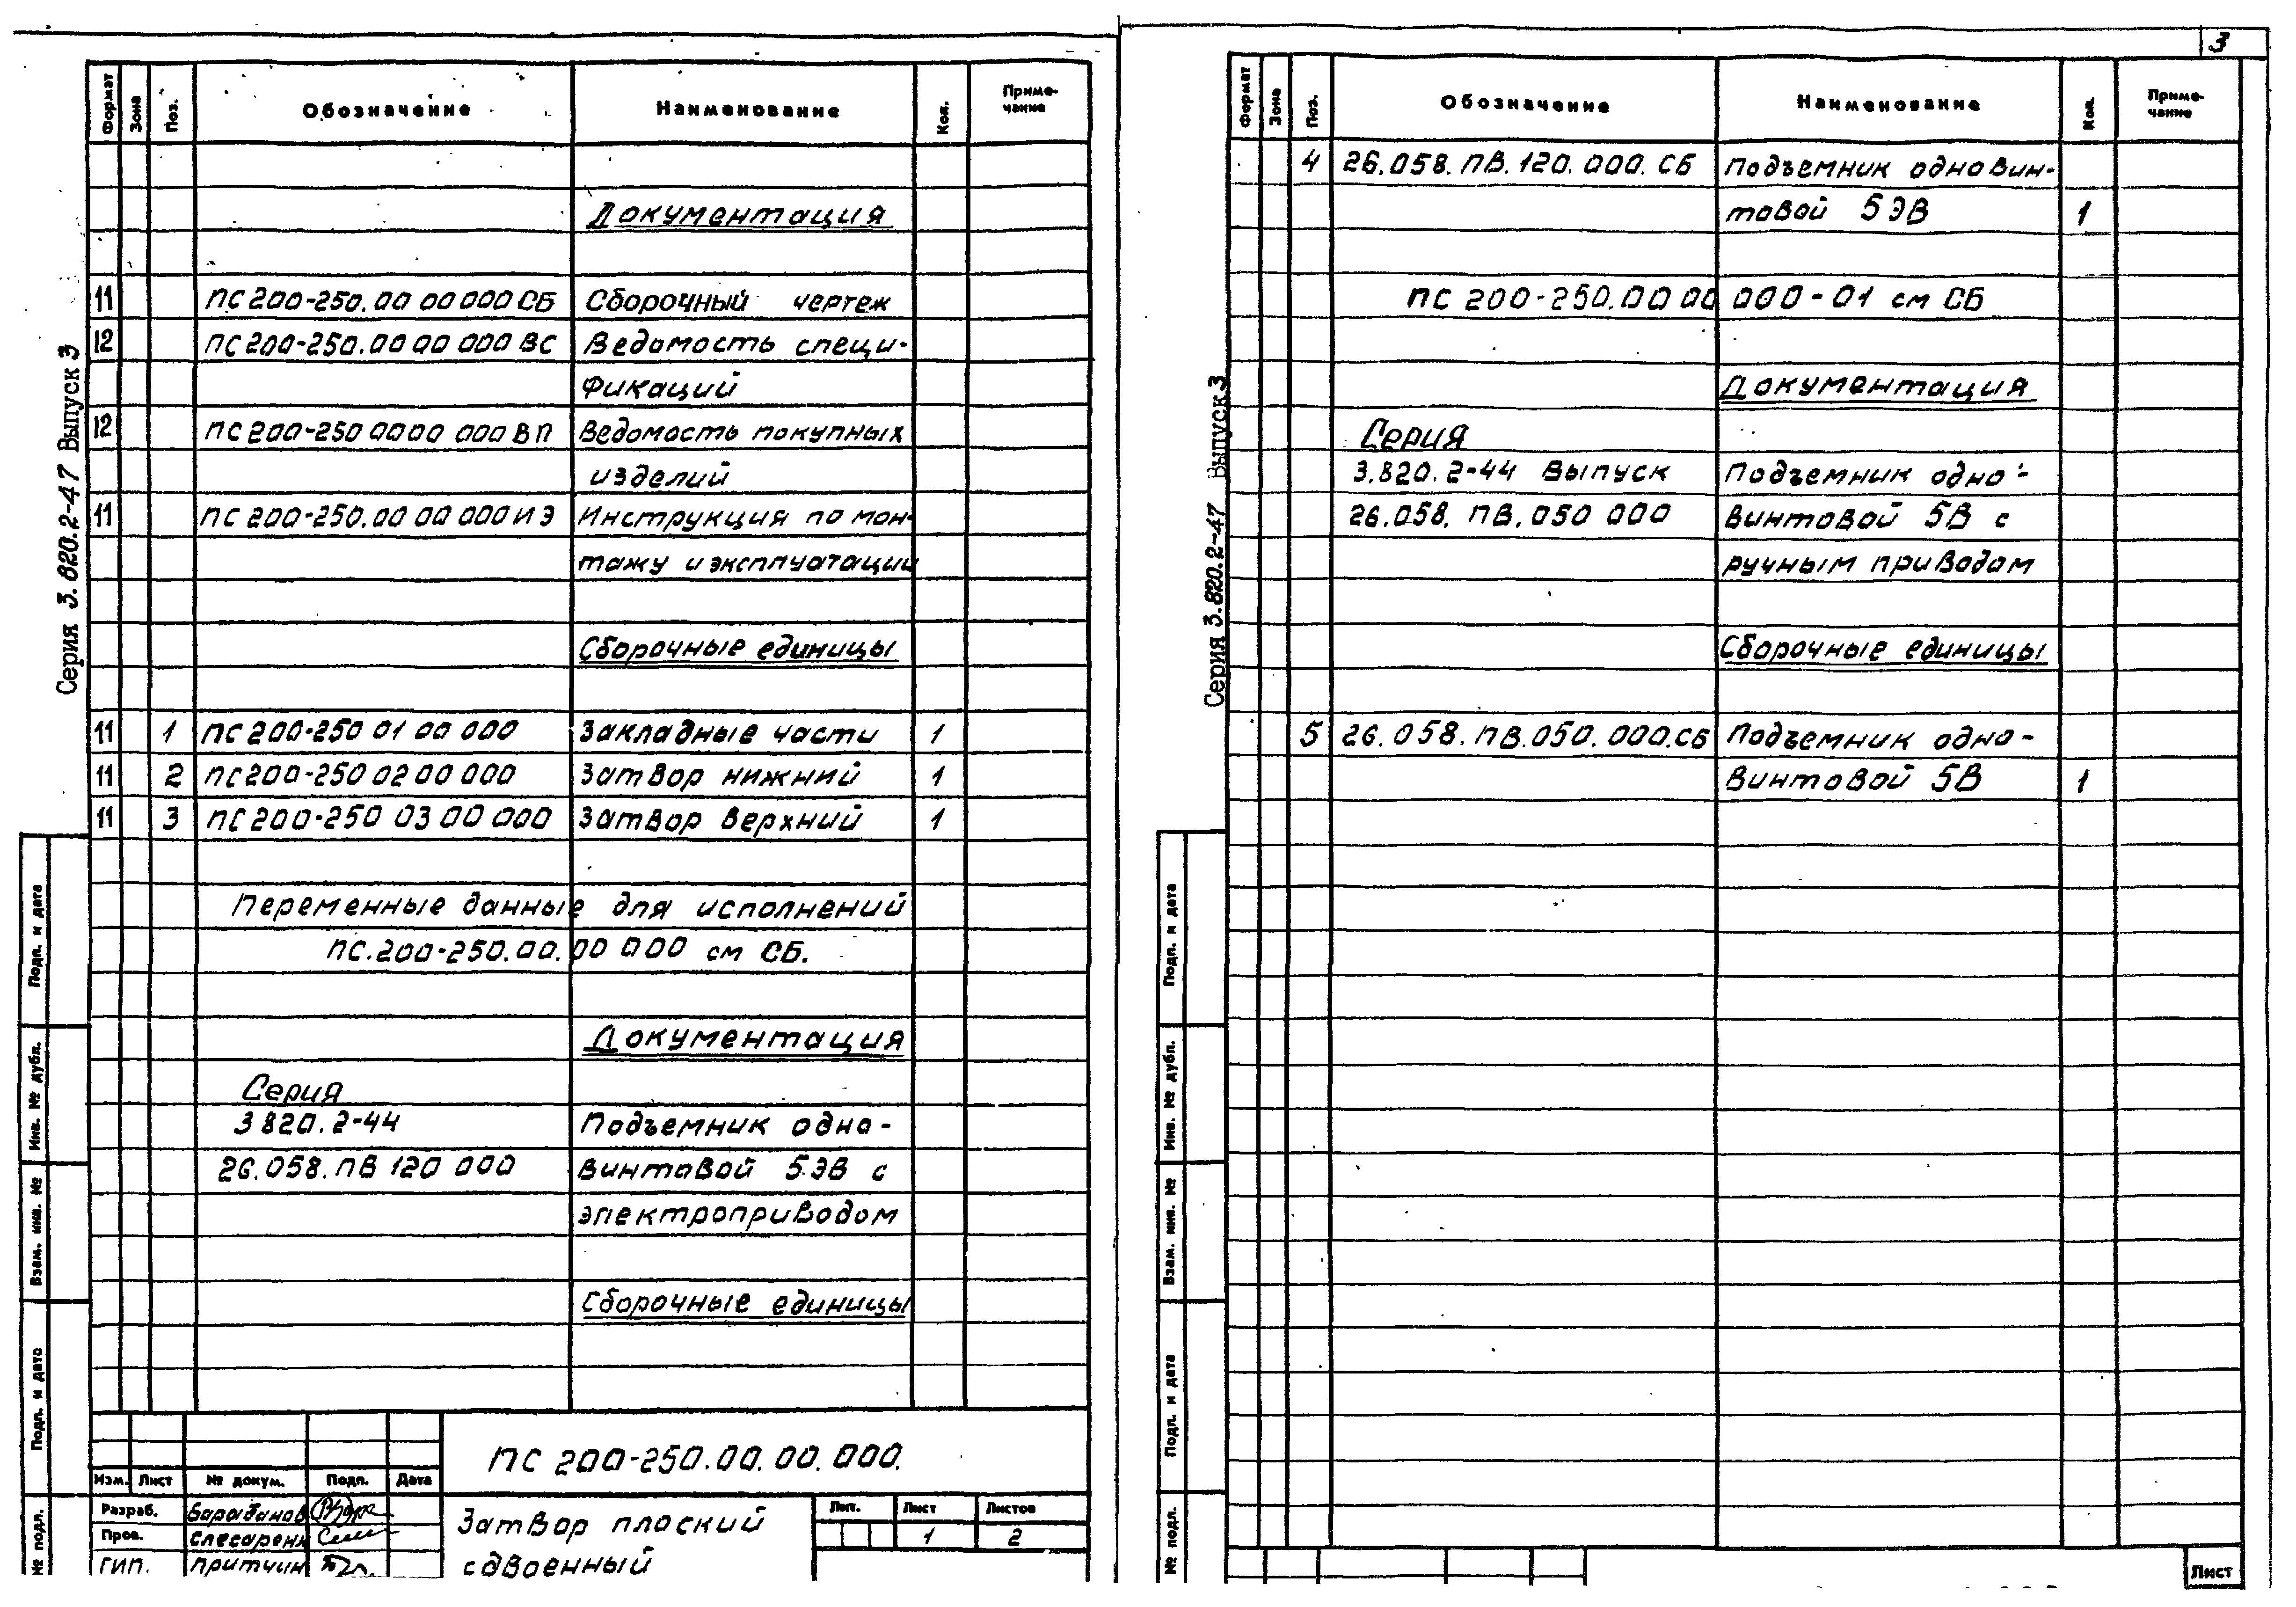 Серия 3.820.2-47 Выпуск 3
Формат Зона Поз. Обозначение Наименование Кол. Приме-
чание
Документация
11 ПС 200-250. 00 00 000 СБ Сборочный чертеж
12 ПС 200-250. 00 00 000 ВС Ведомость специ-
фикаций
12 ПС 200-250 00 00 000 ВП Ведомость покупных
изделий
11 ПС 200-250. 00 00 000 ИЭ Инструкция по мон-
тажу и эксплуатации
Сборочные единицы
11 1 ПС 200-250 01 00 000 Закладные части 1
11 2 ПС 200-250 02 00 000 Затвор нижний 1
11 3 ПС 200-250 03 00 000 Затвор верхний 1
Переменные данные для исполнений
ПС.200-250. 00. 00 000 см СБ.
Документация
Серия
3 820. 2-44 Подъемник одно-
26.058. ПВ 120 000 винтовой 5 ЭВ с
электроприводом
Сборочные единицы
Подп. и дата
Инв. № дубл.
Взам. инв. №
Подп. и дата
№ подл.
ПС 200-250. 00. 00. 000.
Изм. Лист № докум. Подп. Дата
Разраб.
Пров. Слесаренк
ГИП. Притчин
Затвор плоский
сдвоенный
Лит. Лист Листов
1 2
3
Серия 3.820.2-47 Выпуск 3
Формат Зона Поз. Обозначение Наименование Кол. Приме-
чание
4 26.058. ПВ. 120. 000. СБ Подъемник одновин-
товой 5 ЭВ 1
ПС 200-250. 00 00 000-01 см СБ
Документация
Серия
3.820. 2-44 Выпуск Подъемник одно-
26.058. ПВ. 050 000 винтовой 5В с
ручным приводом
Сборочные единицы
5 26. 058. ПВ. 050. 000. СБ Подъемник одно-
винтовой 5В 1
Подп. и дата
Инв. № дубл.
Взам. инв. №
Подп. и дата
№ подл.
Лист